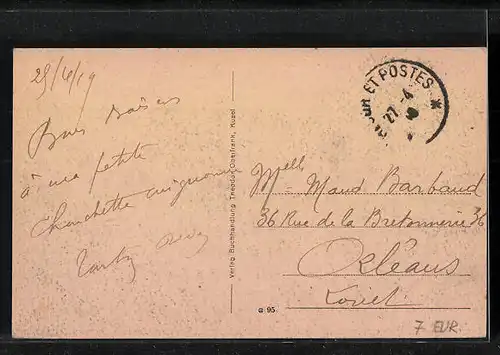 25/4/19
Bons Baisers
à une petite
Chouchette mignonne
Verlag Buchhandlung Theodor Oberfrank, Kusel
a 95
ET POSTES *
27-4
Melle Maud Barbaud
36 Rue de la Bretonnerie 36
Orléans
Loiret
7 EUR